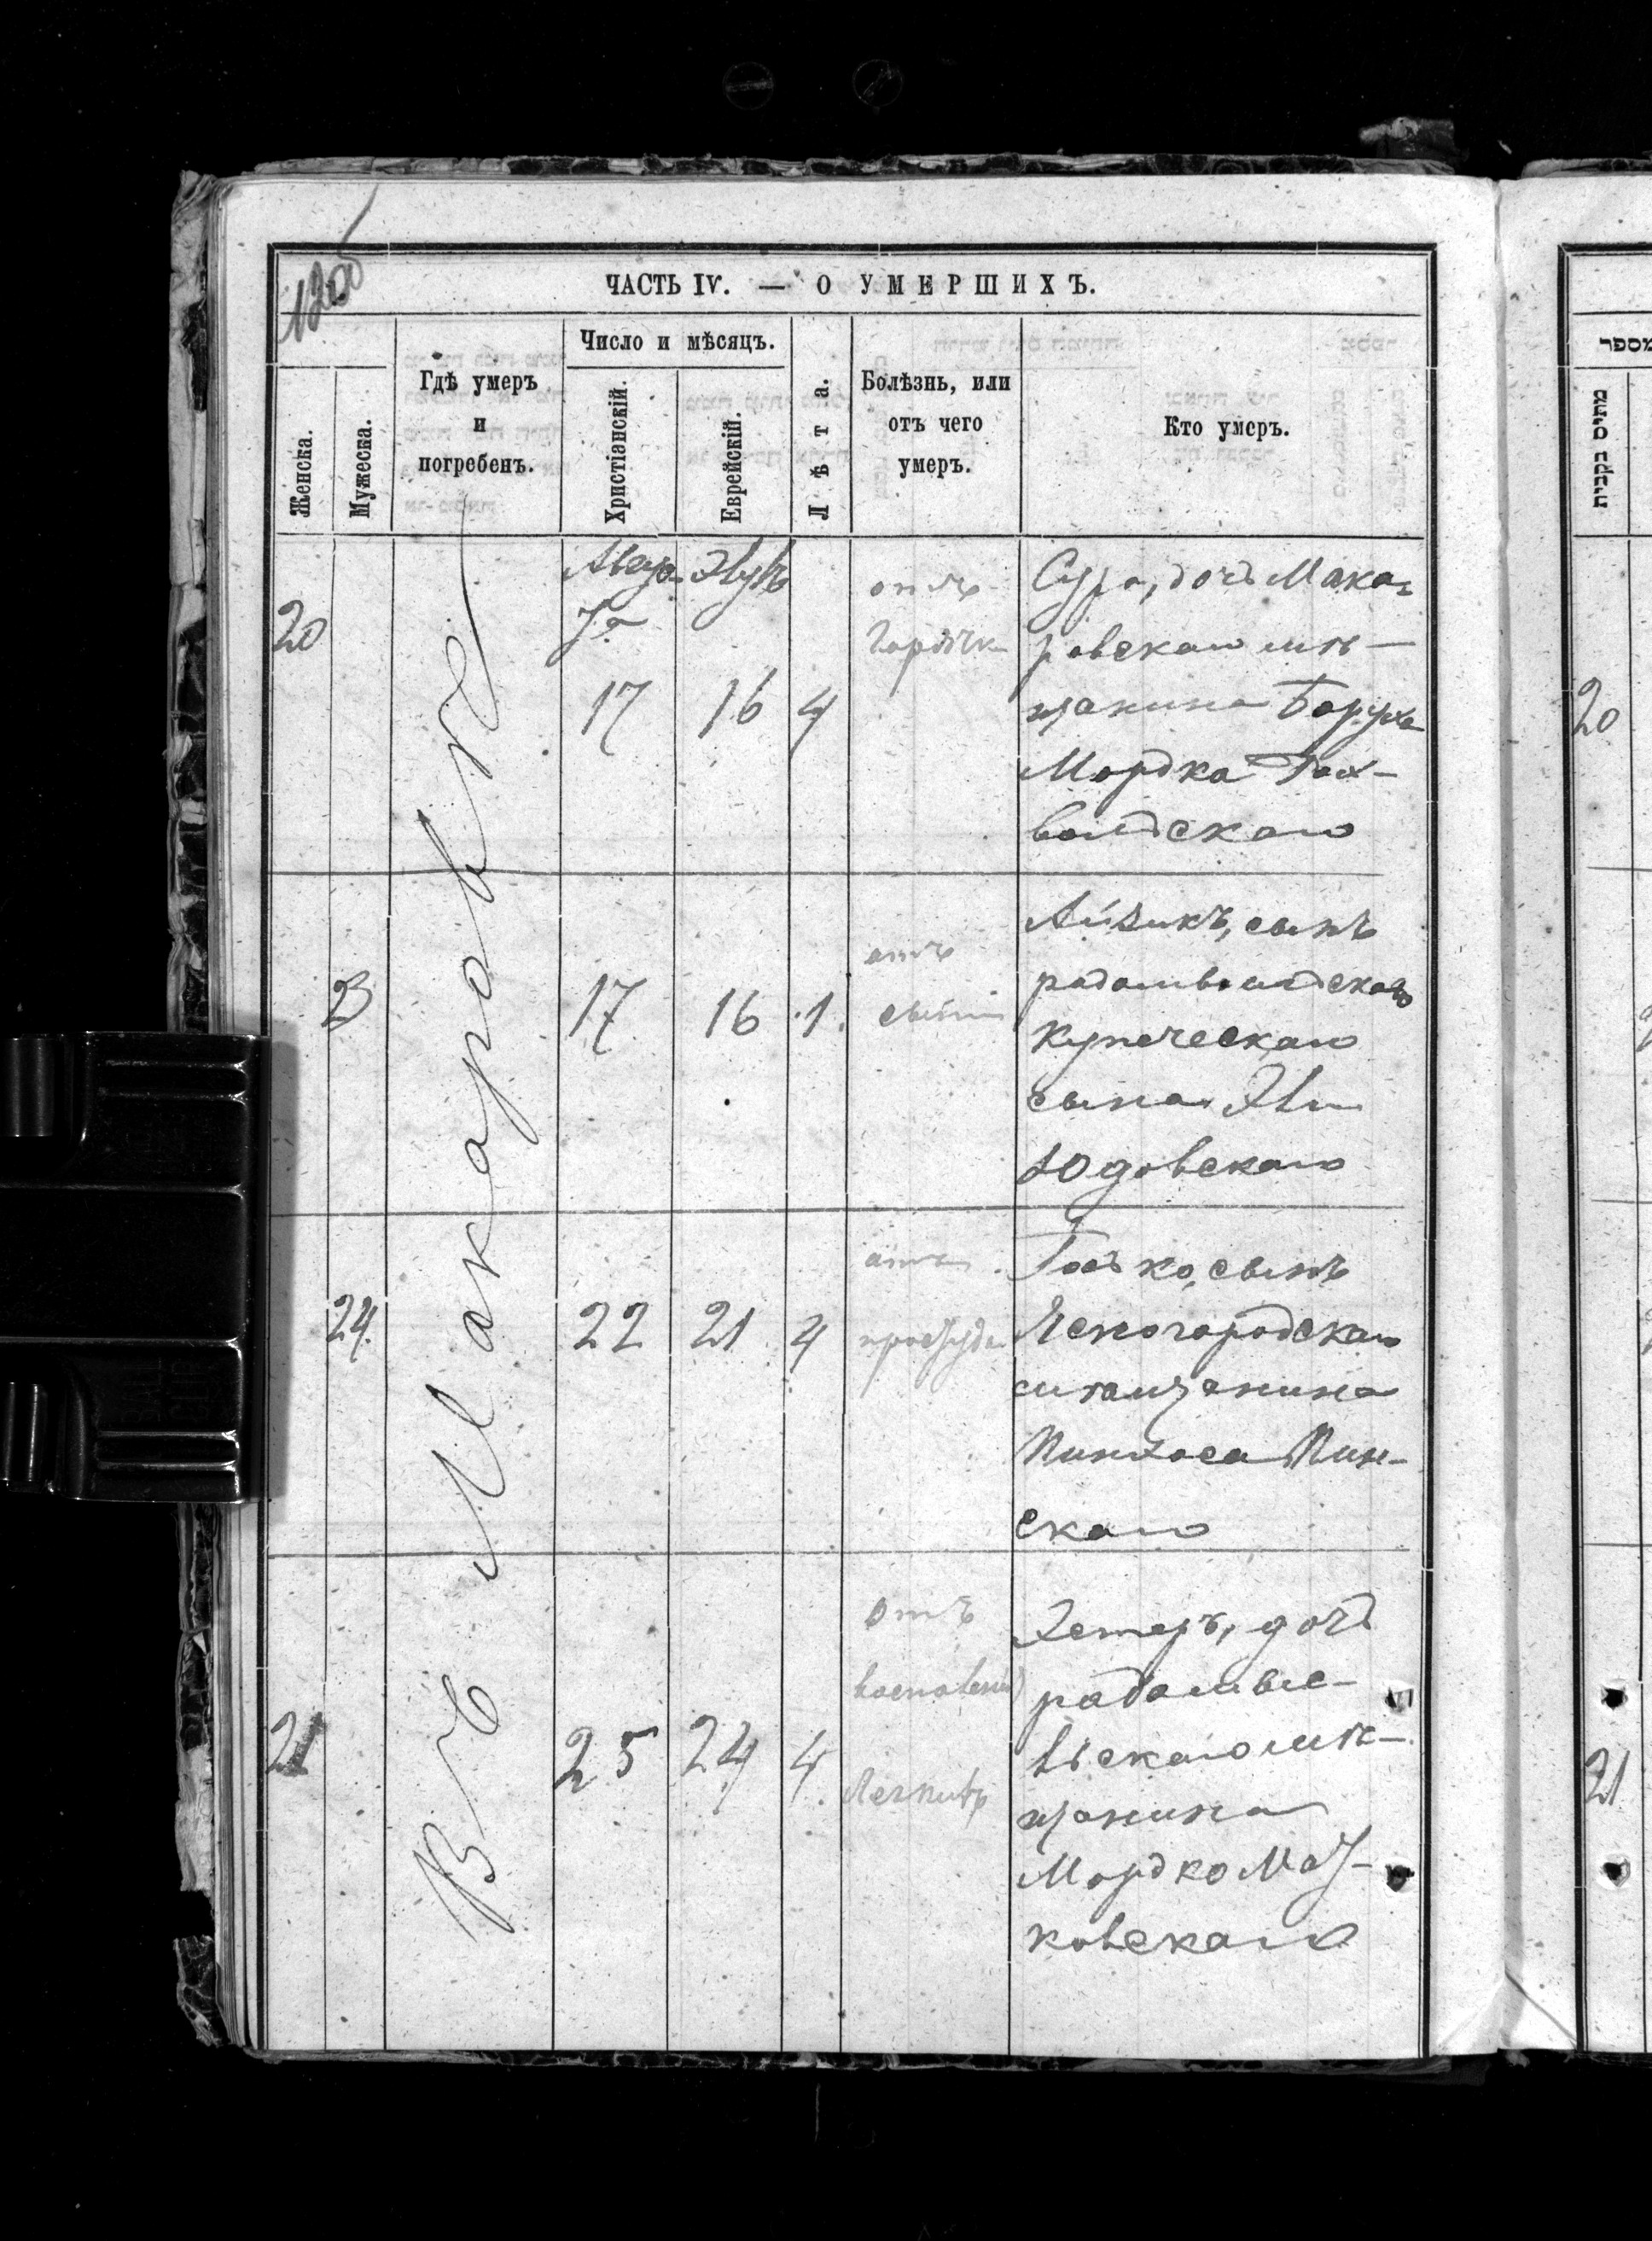 1200
ЧАСТЬ IV. — О УМЕРШИХЪ.
Женска.
Мужеска.
Гдѣ умеръ
и
погребенъ.
Число и мѣсяцъ.
Христіанскій.
Еврейскій.
Лѣта.
Болѣзнь, или
отъ чего
умеръ.
Кто умеръ.
Въ Макаровѣ
20
Авгу- Элулъ
17 16 4
отъ
Горячк
Сура, дочь Мака-
ровскаго мѣ-
щанина Боруха
Мордка
23
17 16 1
отъ
Айзикъ, сынъ
радомысльскаго
купеческаго
сына Эли
Юдовскаго
24
22 21 4
отъ
простуды
сынъ
Ясногородскаго
мѣщанина
Пинхоса Пин-
скаго
21
25 24 4
отъ
воспаленія
Легкихъ
Эстеръ, дочь
радомыс-
льскаго мѣ-
щанина
Мордко
ковскаго
מספר
מתים נקבות
20
21